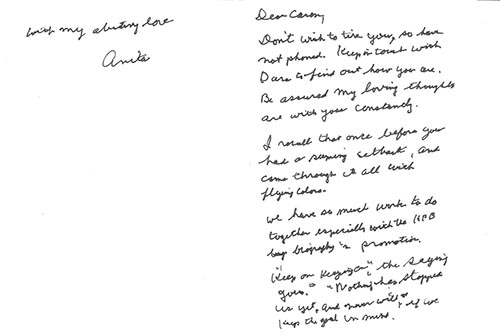 Dear Carony
Don't wish to tire you, so have
not phoned. Keep in touch with
Dara to find out how you are.
Be assured my loving thoughts
are with you constantly.
I recall that once before you
had a seeming setback, and
came through it all with
flying colors.
We have so much work to do
together especially with the
biography in promotion.
"Keep on Keeping on", the saying
goes. "Nothing has stopped
us yet, and never will" if we
keep the goal in mind.
with my abiding love
Anita